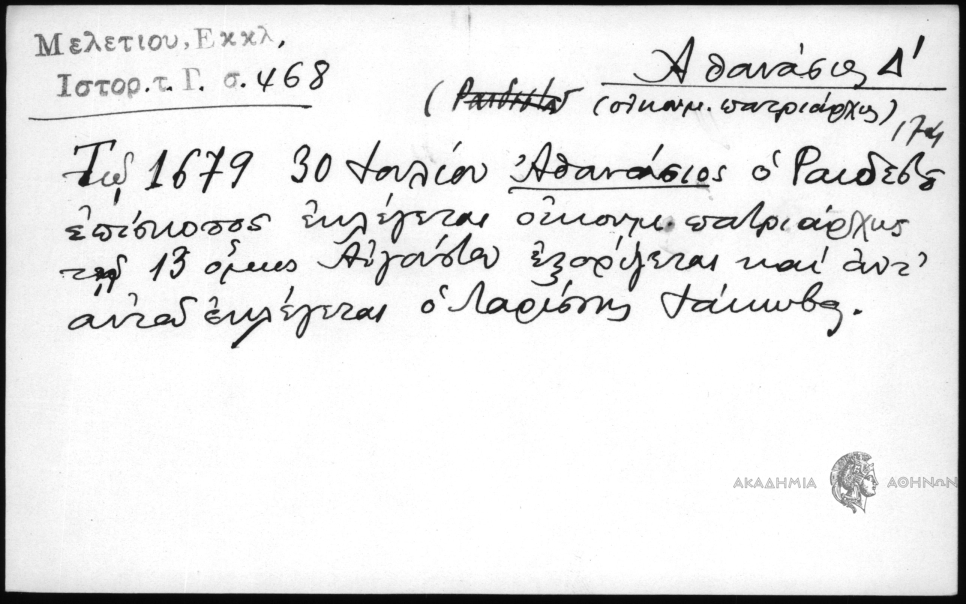 Μελετίου, Εκκλ,
Ιστορ. τ. Γ. σ. 468
Ἀθανάσιος Δ'
(οἰκουμ. πατριάρχης)
Τῷ 1679 30 Ἰουλίου Ἀθανάσιος ὁ Ραιδεστοῦ
ἐπίσκοπος ἐκλέγεται οἰκουμ. πατριάρχης
τῇ 13 ὅμως Αὐγούστου ἐξορίζεται καί ἀντ'
αὐτοῦ ἐκλέγεται ὁ Λαρίσσης Ἰάκωβος.
ΑΚΑΔΗΜΙΑ ΑΘΗΝΩΝ